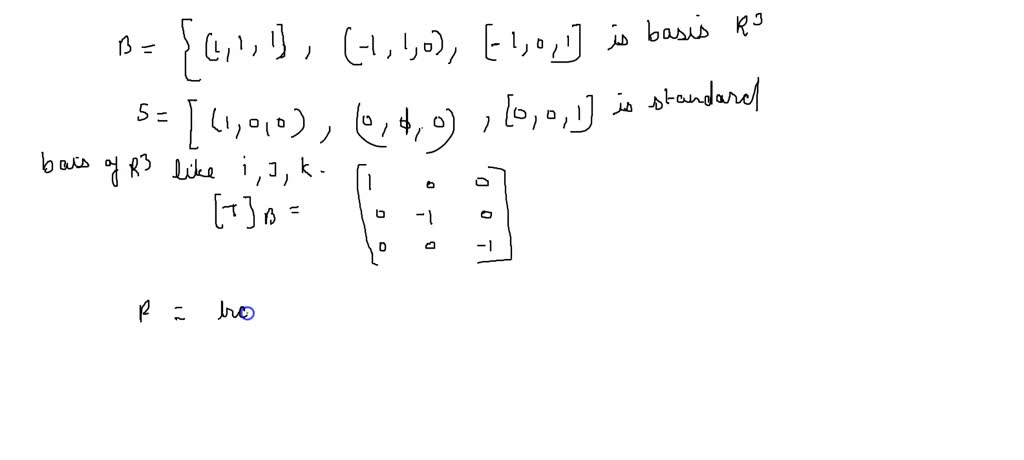 B = { (1, 1, 1], (-1, 1, 0), [-1, 0, 1] is basis R³
S = [ (1, 0, 0), (0, 1, 0), [0, 0, 1] is standard
bais of R³ like i, J, k.
[T]B = [1 0 0
0 -1 0
0 0 -1]
P =